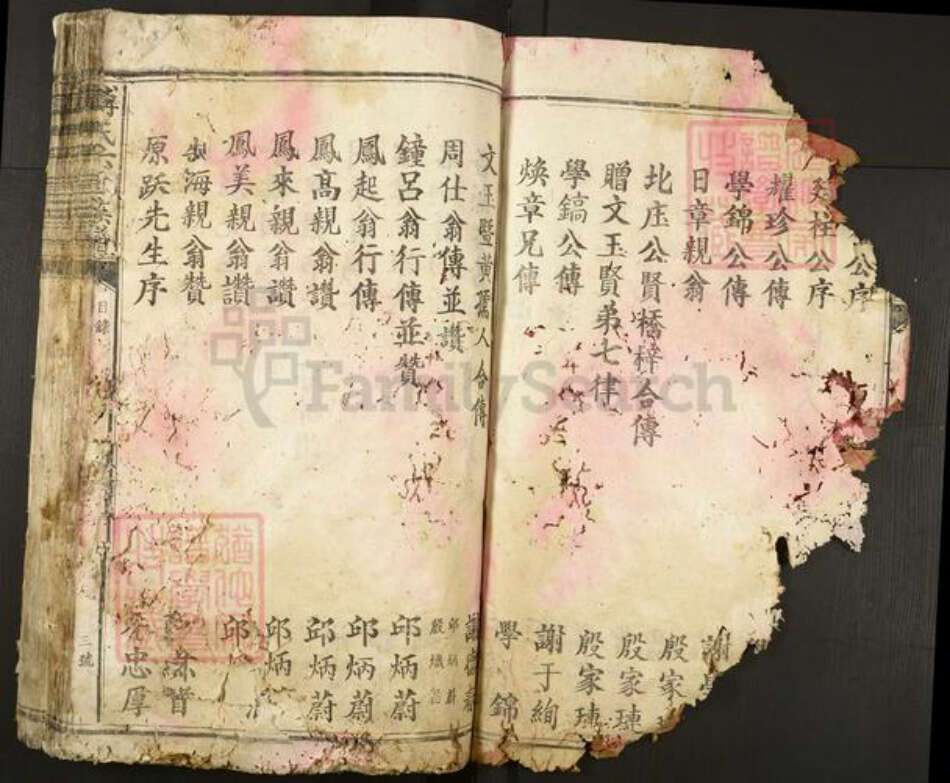 公序
廷柱公序
耀珍公傳
學錦公傳
日章親翁
北庄公賢橋梓合傳
贈文玉賢弟七律
學鎬公傳
煥章兄傳
謝
殷家
殷家璉
殷家璉
謝于絢
學錦
文玉暨黃孺人合傳
周仕翁傳並讚
鐘呂翁行傳並贊
鳳起翁行傳
鳳髙親翁讚
鳳來親翁讚
鳳美親翁讚
海親翁贊
原躍先生序
邱炳蔚
邱炳蔚
邱炳蔚
邱炳蔚
邱炳
邱
忠厚
目錄
三號
FamilySearch